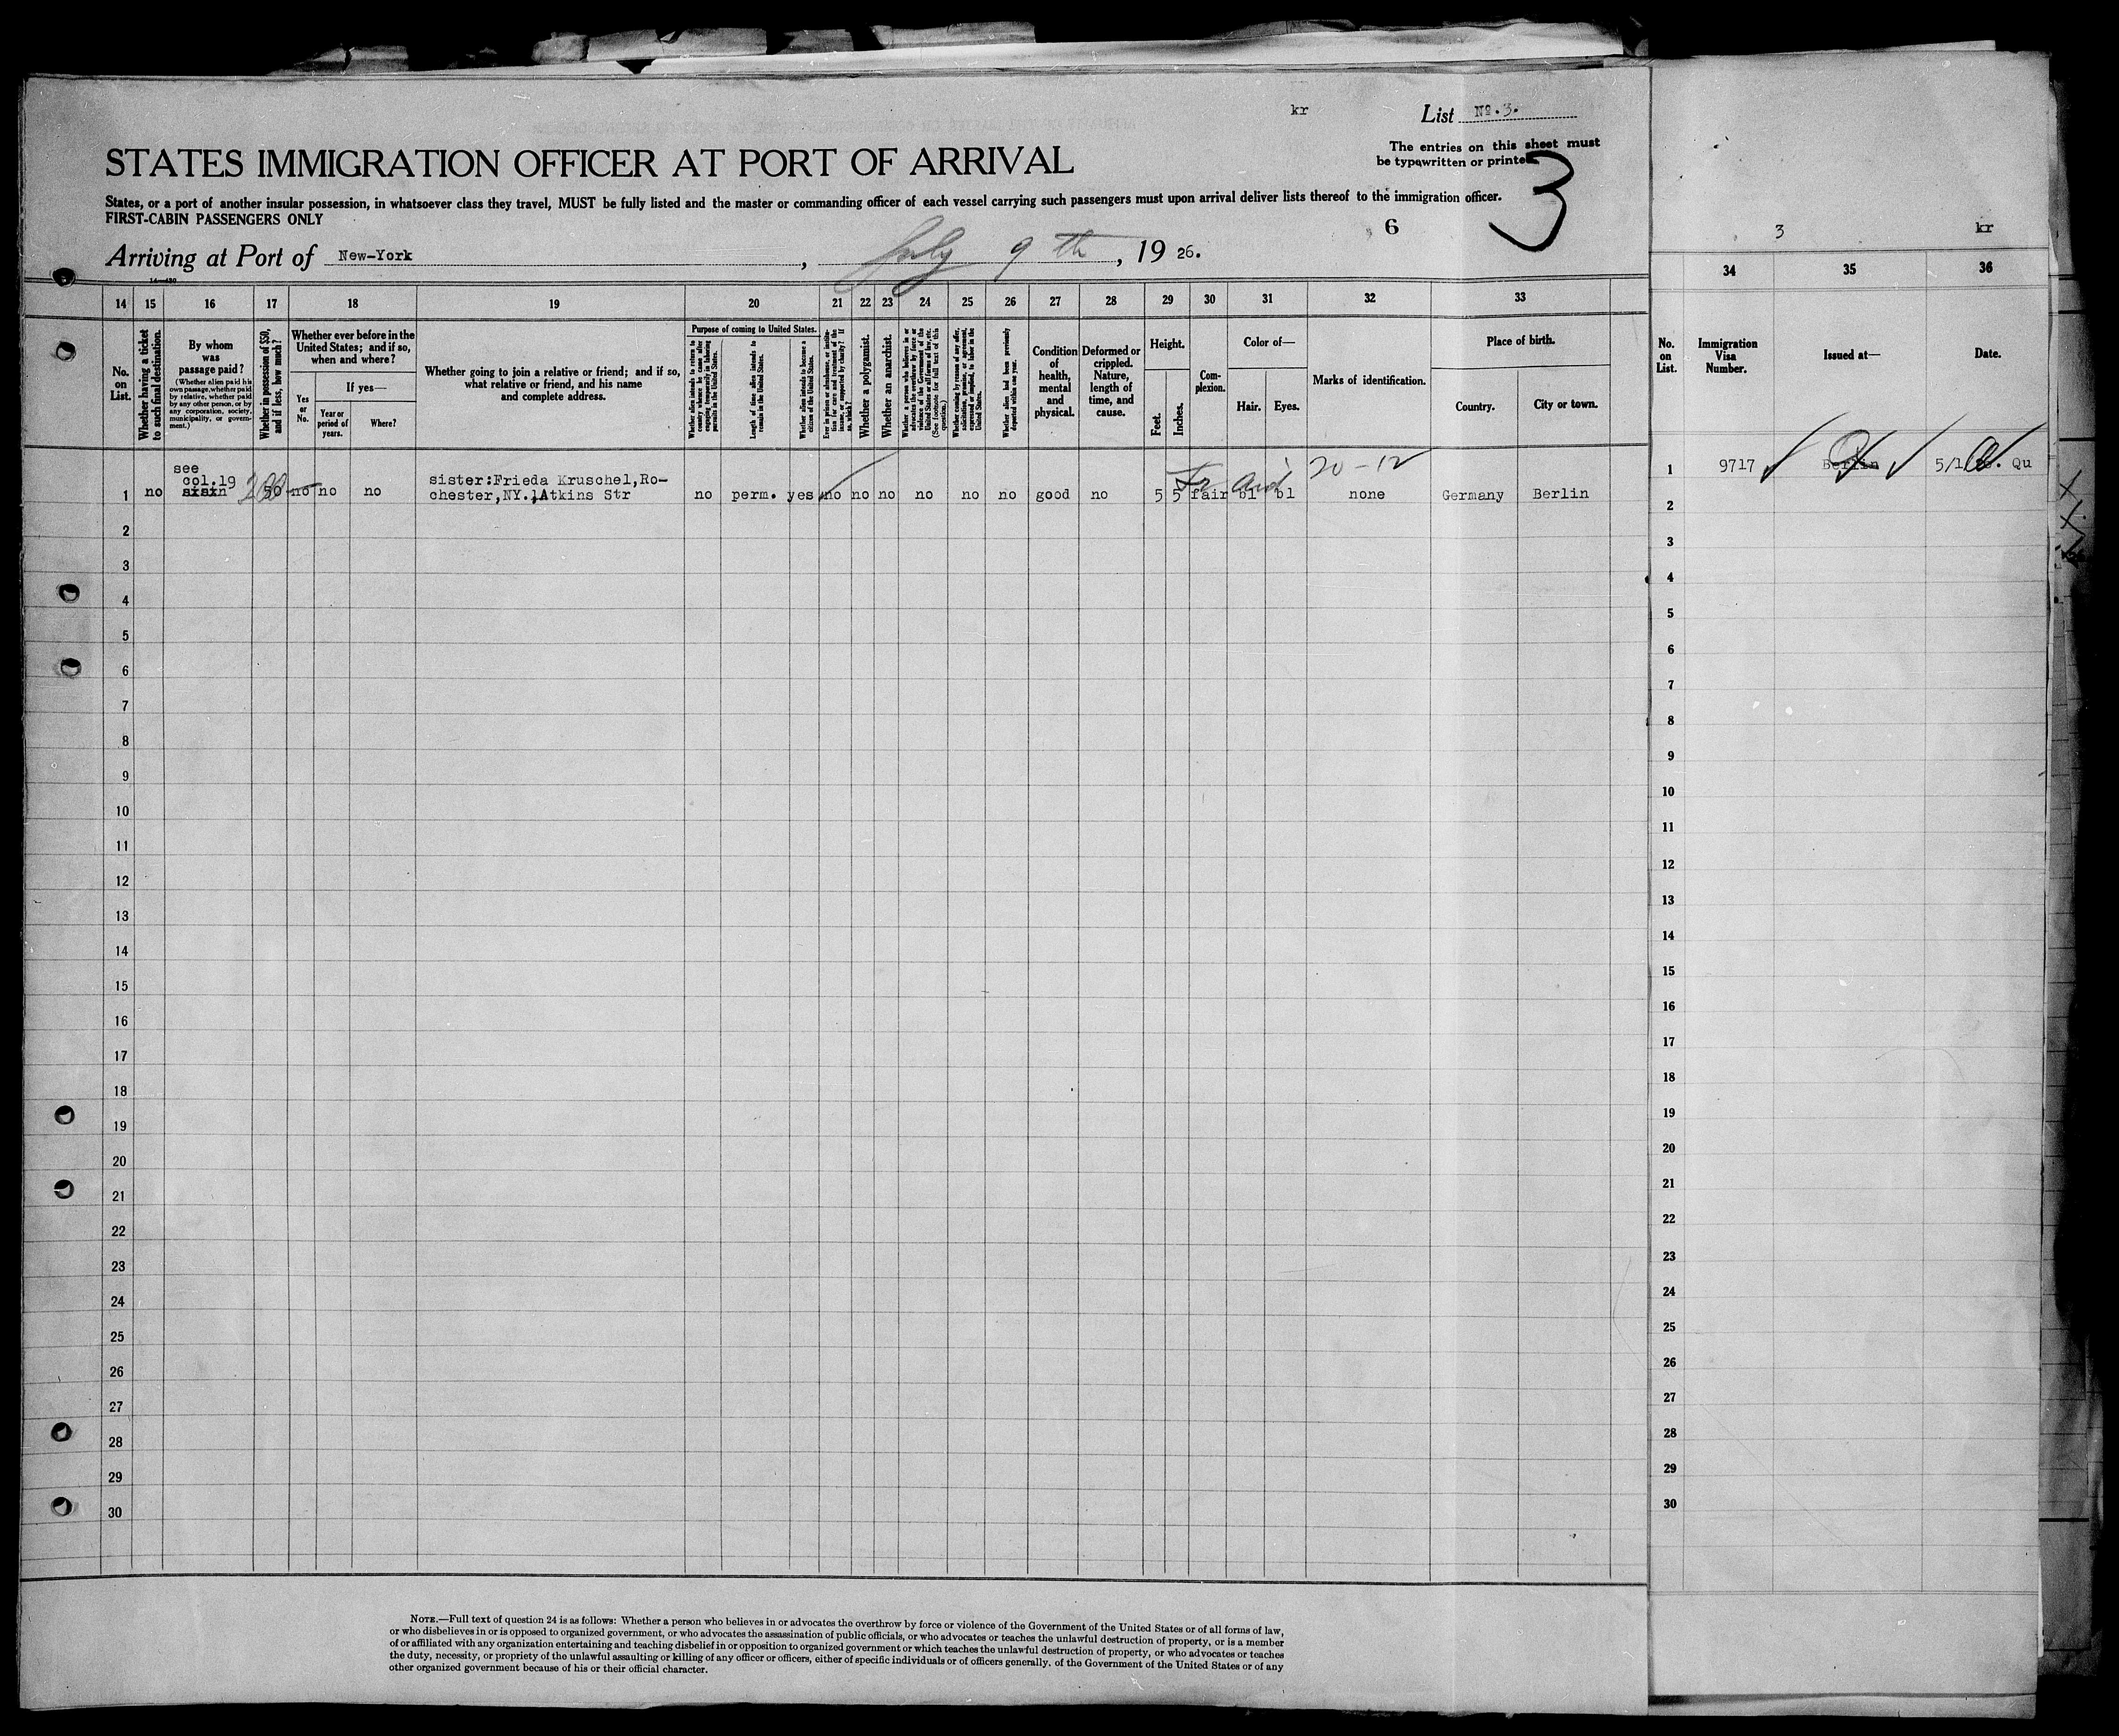 kr
List Nº.3.
The entries on this sheet must
be typewritten or printed.
STATES IMMIGRATION OFFICER AT PORT OF ARRIVAL
3
States, or a port of another insular possession, in whatsoever class they travel, MUST be fully listed and the master or commanding officer of each vessel carrying such passengers must upon arrival deliver lists thereof to the immigration officer.
FIRST-CABIN PASSENGERS ONLY
6
3 kr
Arriving at Port of New-York, July 9th, 1926.
14 15 16 17 18 19 20 21 22 23 24 25 26 27 28 29 30 31 32 33
34 35 36
No. on List.
Whether having a ticket to such final destination.
By whom was passage paid?
(Whether alien paid his own passage, whether paid by relative, whether paid by any other person, or by any corporation, society, municipality, or government.)
Whether in possession of $50, and if less, how much?
Whether ever before in the United States; and if so, when and where?
Yes or No.
If yes—
Year or period of years.
Where?
Whether going to join a relative or friend; and if so, what relative or friend, and his name and complete address.
Purpose of coming to United States.
Length of time alien intends to remain in the United States.
Whether alien intends to become a citizen of the United States.
Whether a polygamist.
Whether an anarchist.
Whether alien had been previously deported within one year.
Condition of health, mental and physical.
Deformed or crippled. Nature, length of time, and cause.
Height.
Feet.
Inches.
Complexion.
Color of—
Hair.
Eyes.
Marks of identification.
Place of birth.
Country.
City or town.
No. on List.
Immigration Visa Number.
Issued at—
Date.
see
col.19
20-12
1 no 50 no no no
sister:Frieda Kruschel,Ro-
chester,NY.1Atkins Str
no perm. yes no no no no no no good no 5 5 fair bl bl none Germany Berlin
1 9717 Berlin Qu
2
3
4
5
6
7
8
9
10
11
12
13
14
15
16
17
18
19
20
21
22
23
24
25
26
27
28
29
30
2
3
4
5
6
7
8
9
10
11
12
13
14
15
16
17
18
19
20
21
22
23
24
25
26
27
28
29
30
NOTE.—Full text of question 24 is as follows: Whether a person who believes in or advocates the overthrow by force or violence of the Government of the United States or of all forms of law,
or who disbelieves in or is opposed to organized government, or who advocates the assassination of public officials, or who advocates or teaches the unlawful destruction of property, or is a member
of or affiliated with any organization entertaining and teaching disbelief in or opposition to organized government or which teaches the unlawful destruction of property, or who advocates or teaches
the duty, necessity, or propriety of the unlawful assaulting or killing of any officer or officers, either of specific individuals or of officers generally, of the Government of the United States or of any
other organized government because of his or their official character.